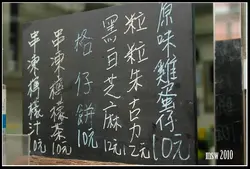 原味雞蛋仔10元
粒粒朱古力12元
黑白芝麻12元
格仔餅10元
串凍檸檬茶10元
串凍檸檬汁10元
msw 2010